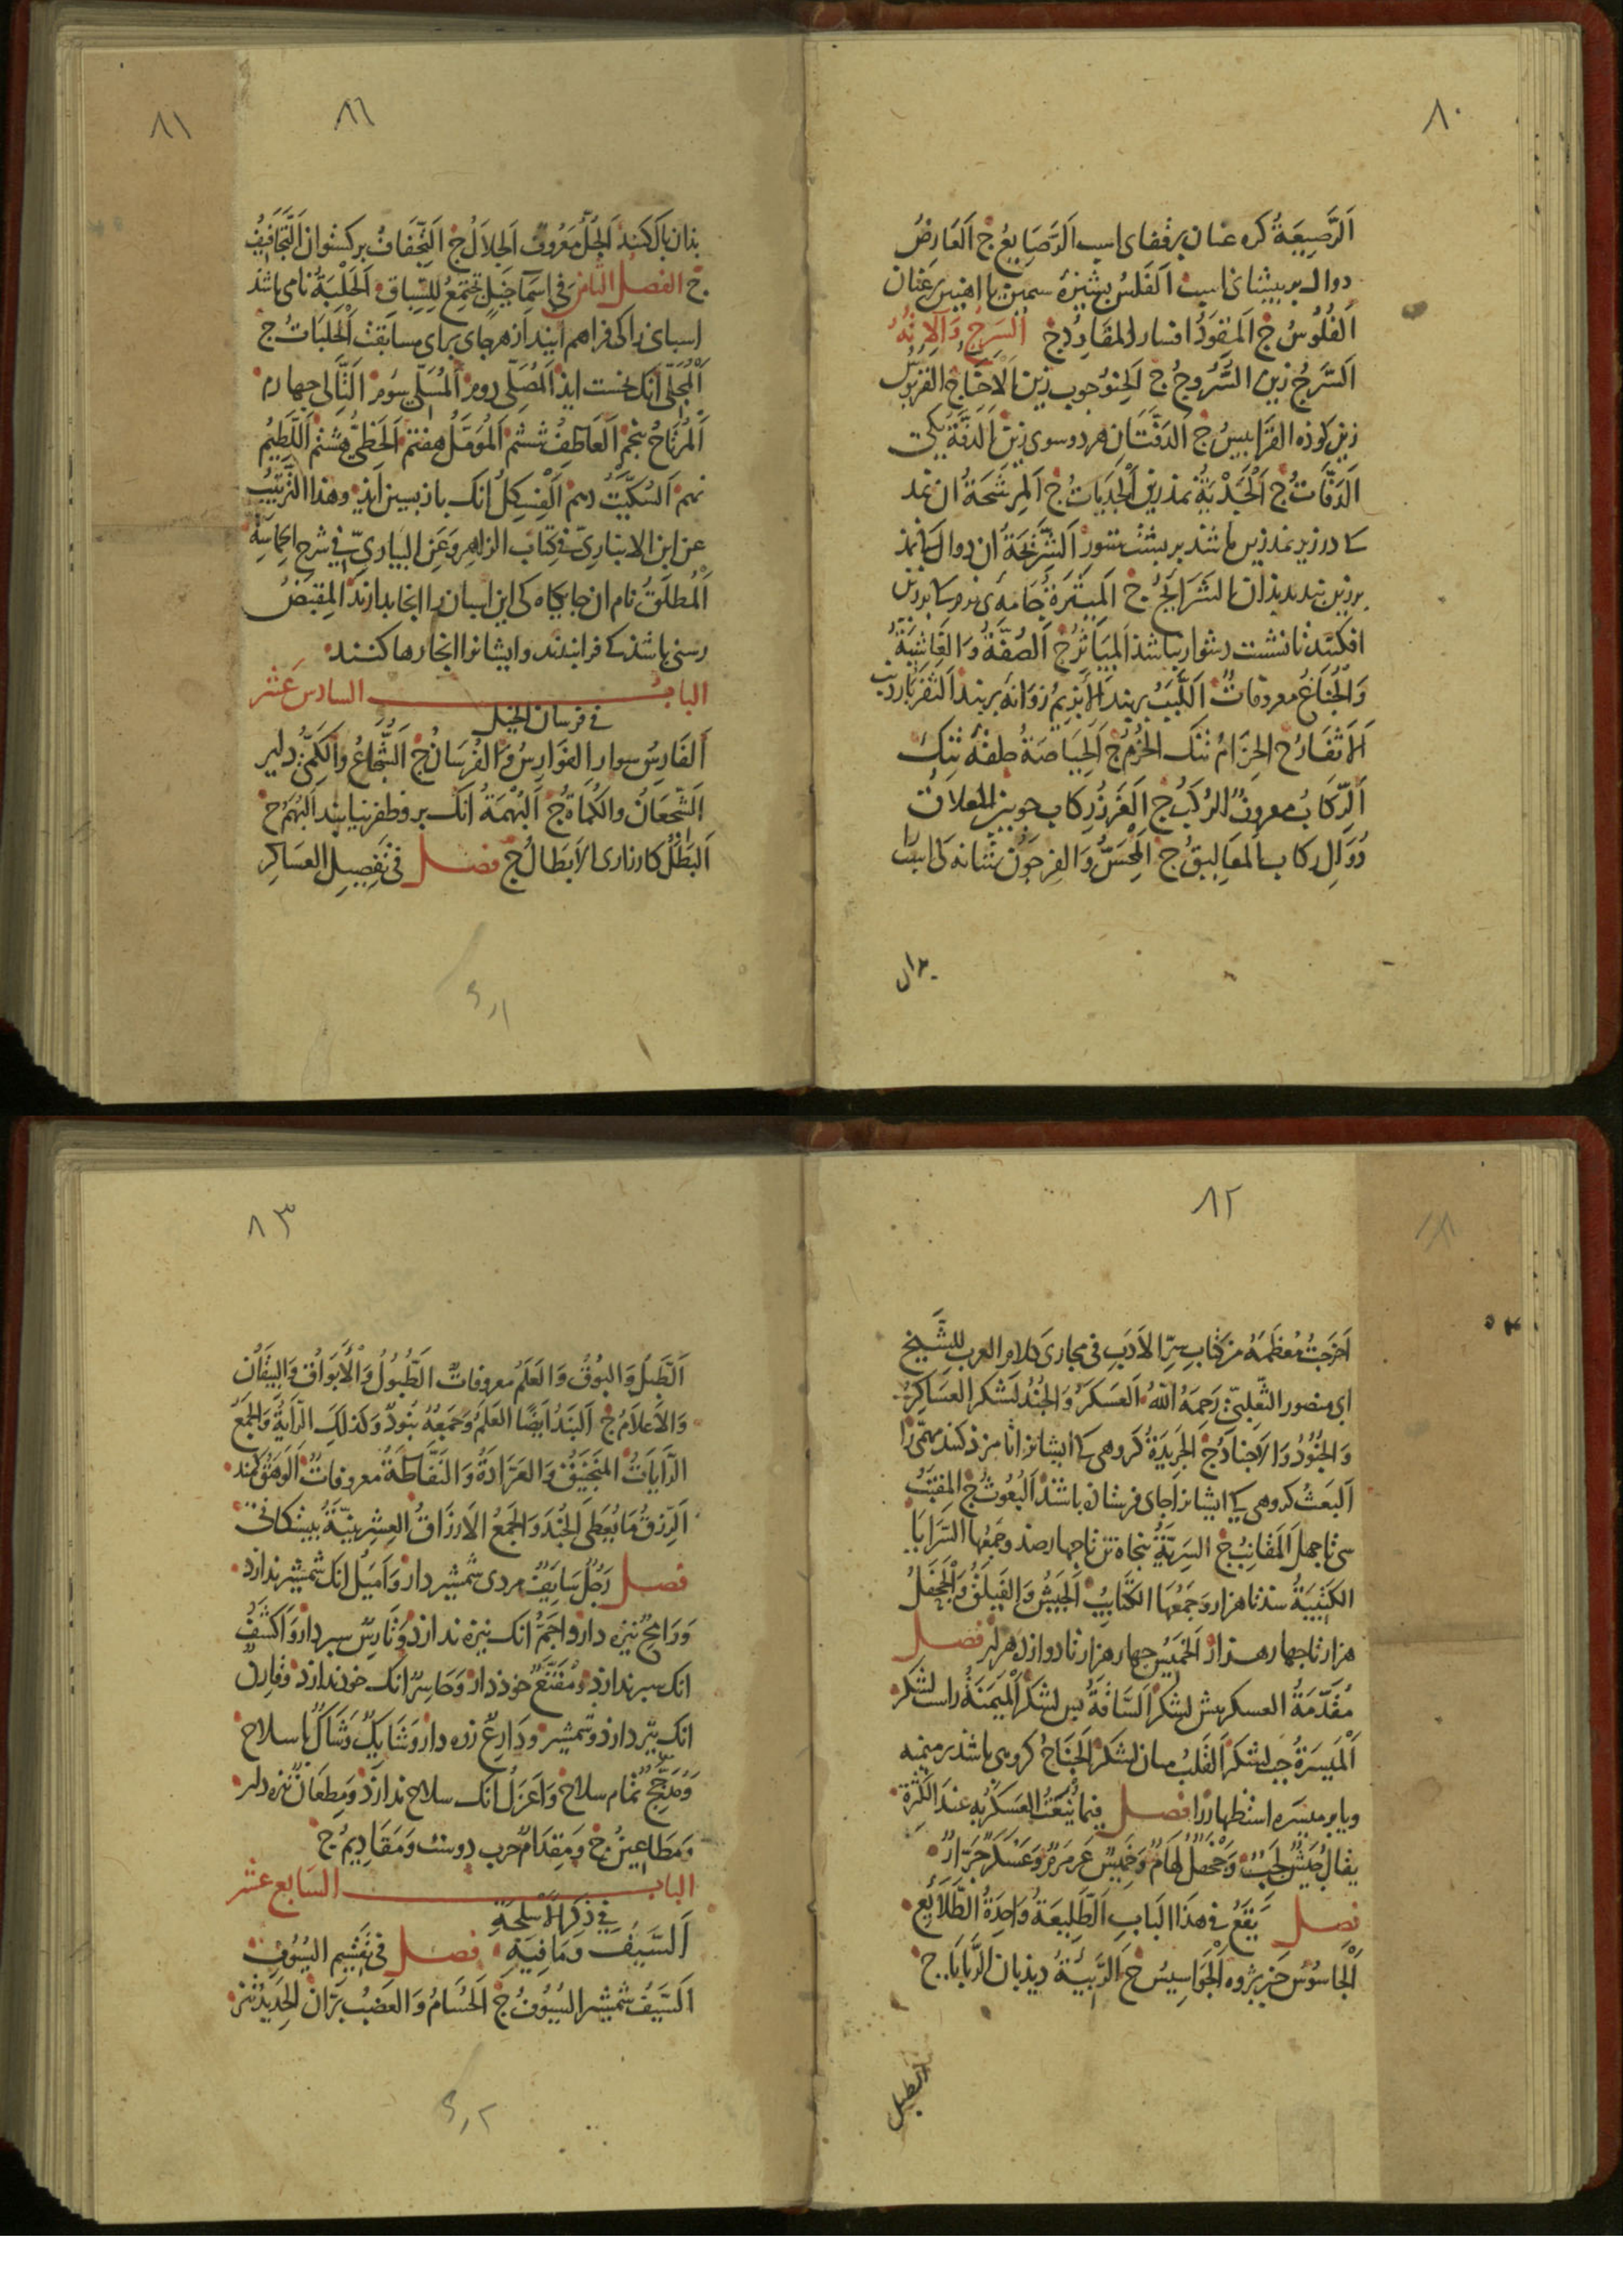 ٨٠
اَلرَّصِيعَةُ كره عنان برقفاى اسب الرَّصَايِعُ ج اَلعَارِضُ
دوال بر پیشانى اسب اَلفَلسُ پشیزهٔ سمین یا اهنین بر عنان
اَلفُلُوسُ ج اَلمِقوَدُ افسار المَقَاوِدُ ج اَلسَرجُ وَآلاتُهُ
اَلسَّرجُ زین السُّرُوجُ ج اَلحِنوُ چوب زین اَلاَحنَاءُ ج القَرَبُوسُ
زین کوذه القَرَابِيسُ ج الدَفَّتَان هر دو سوى زین اَلدَفَّةُ یکی
الدَفَّاتُ ج اَلجَديَةُ نمذ زین اَلجَدَيَاتُ ج اَلمِرشَحَةُ ان نمد
کا در زیر نمد زین باشذ بر پشت ستور اَلشَّرِيحَةُ ان دوال
بر زین بندند بذان الشَرَايِجُ ج اَلمِيثَرَةُ جَامَه‌ی
افکنند تا نشست دشوار نباشذ اَلمَيَاثِرُ ج اَلصُفَّةُ وَالغَاشِيَةُ
وَالجُنَاغُ معروفاتٌ اَللَّبَبُ بربند اَلاِبزِيمُ زوَانهٔ بربند اَلثَفَرُ پاردب
اَلاَثفَارُ ج الحِزَامُ تنک الحُزُمُ ج اَلحِيَاصَةُ حلقهٔ تنک
اَلرِّكَابُ معروفٌ الرُكُبُ ج اَلغَرزُ رکاب چوبین المعلاق
دُوَالِ رکاب المَعَالِيقُ ج اَلمِحَسُّ وَالفِرجَونُ شانه کی اسب را
بدان
٨١
٨١
بذان پاک کنند اَلجُلُّ مَعرُوفٌ اَلجِلاَلُ ج اَلتِّجفَافُ برکستوان اَلتَّجَافِيفُ
ج الفصل الثامن فى اسمآ خيلٍ تجتمع للسِّبَاقِ اَلحَلبَةُ نامى باشذ
اسبانی را کی فراهم ایند از هر جای برای مسابقت اَلحَلبَاتُ ج
اَلمُجَلّى انک نخست ایذ اَلمُصَلّى دوم اَلمُسَلّى سوم اَلتَّالِى چهارم
اَلمُرتَاحُ پنجم اَلعَاطِفُ ششم اَلمُؤَمَّلُ هفتم اَلحَظِىُّ هشتم اَللَّطِيمُ
نهم اَلسُكَّيتُ دهم اَلفِسكِلُ انک باز پسین ایذ وهذا الترتيب
عن ابن الانبارى فى كتاب الزاهر وَعَنِ البيارىّ فى شرح الحماسة
اَلمُطلَقُ نام ان جایکاه کی این اسبان را انجا بدارند اَلمِقبَضُ
رسنی باشذ کی فرا بندند وایشانرا انجا رها کنند
الباب السادس عَشَر
فى فرسان الخيل
اَلفَارِسُ سوار الفَوَارِسُ وَالفُرسَانُ ج اَلشُّجَاعُ وَالكَمِىُّ دلیر
اَلشُّجعَانُ والكُمَاةُ ج اَلبُهمَةُ انک بر و ظفر نیابند اَلبُهَمُ ج
اَلبَطَلُ کارزارى الاَبطَالُ ج فصل فى تَفصِيلِ العَسَاكِر
٨٢
اَخرَجتُ مُعظَمَهُ من كتاب سِرِّ الاَدَبِ فى مجارى كلام العرب للشَّيخ
ابى منصور الثَّعلِبىّ رَحِمَهُ اللهُ اَلعَسكَرُ وَالجُندُ لشکر العَسَاكِرُ
وَالجُنُودُ وَالاَجنَادُ ج الجَرِيدَةُ کروهى کا ایشانرا نامزذ کنند مهمّى را
اَلبَعثُ کروهى کی ایشانرا جاى فرستاذه باشند اَلبُعُوثُ ج المِقنَبُ
سى تا چهل اَلمَقَانِبُ ج السَرِيَّةُ پنجاه تن تا چهار صذ وجمعها السَرَايَا
الكَتِيبَةُ سذ تا هزار وَجَمعُهَا الكَتَايِبُ اَلجَيشُ وَالفَيلَقُ وَالجَحفَلُ
هزار تا چهار هزار اَلخَمِيسُ چهار هزار تا دوازده هزار فصل
مُقَدّمَةُ العسکر پیش لشکر اَلسَّاقَةُ پس لشکر اَلمَيمَنَةُ راست لشکر
اَلمَيسَرَةُ چپ لشکر اَلقَلبُ میان لشکر اَلجَنَاحُ کروهى باشذ بر میمنه
ویا بر میسره استظهار را فصل فيما يُنعَتُ العَسكَرُ بِهِ عند الكَثرَةِ
يقال جَيشٌ لَجِبٌ وَجَحفَلٌ لُهَامٌ وَخَمِيسٌ عَرَمرَمٌ وَعَسكَرٌ جَرَّارٌ
فصل يَقَعُ فى هذا الباب اَلطَّلِيعَةُ وَاحِدَةُ الطَّلَائِعِ
اَلجَاسُوسُ خبر پژوه اَلجَوَاسِيسُ ج اَلرَّبِيئَةُ دیذبان الرَّبَايَا ج
الطبل
٨٣
اَلطَّبلُ وَالبُوقُ وَالعَلَمُ معروفاتٌ الطُبُولُ وَالاَبوَاقُ وَالبِيقَانُ
وَالاَعلاَمُ ج اَلبَندُ اَيضًا العَلَمُ وَجَمعُهُ بُنُودٌ وَكَذلِكَ الرَّايَةُ وَالجَمعُ
الرَّايَاتُ المَنجَنِيقُ وَالعَرَّادَةُ وَالنَفَّاطَةُ معروفاتٌ اَلوَهَقُ کمند
اَلرِّزقُ مَا يُعطَى الجُندَ وَالجَمعُ الاَرزَاقُ العِشرِينِيَّةُ بیستکانی
فصل رَجُلٌ سَايِفٌ مردى شمشیر دار وَاَميَلُ انک شمشیر ندارد
وَرَامِحٌ نیزه دار وَاَجَمُّ انک نیزه ندارد وَتَارِسٌ سپر دار وَاَكشَفُ
انک سپر ندارد وَمُقَنَّعٌ خوذ دار وَحَاسِرٌ انک خوذ ندارد وَقَارِنٌ
انک تیر دارذ وشمشیر وَدَارِعٌ زره دار وَشَايِكٌ وَشَاكٌ با سلاح
وَمُدَجَّجٌ تمام سلاح وَاَعزَلُ انک سلاح ندارد وَمِطعَانٌ نیزه دار
وَمَطَاعِينُ ج وَمِقدَامٌ حرب دوست وَمَقَادِيمُ ج
الباب السَابِع عَشَر
فى ذِكرِ الاَسلِحَةِ
اَلسَّيفُ وَمَا فِيهِ فصل فى تَقسِيم السُيُوفِ
اَلسَّيفُ شمشیر السُيُوفُ ج اَلحُسَامُ وَالعَضبُ برّان